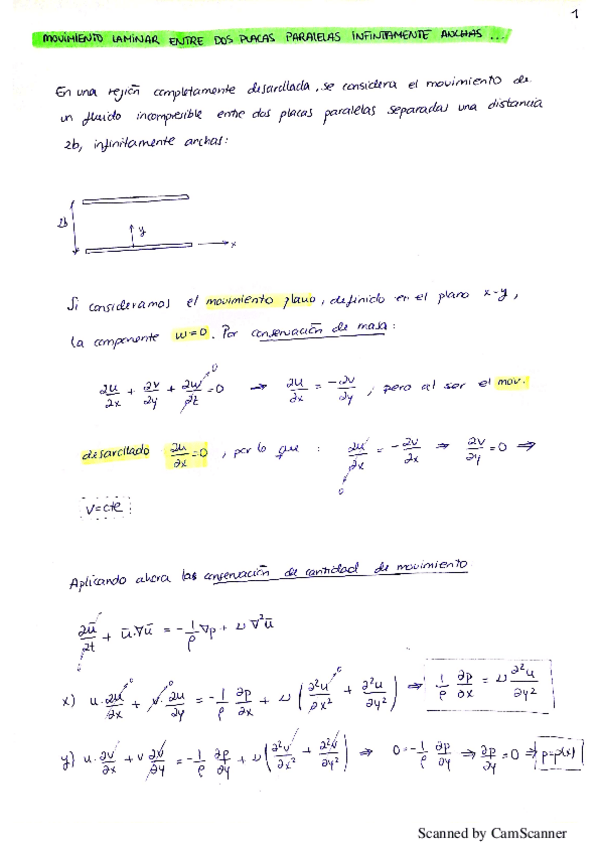 1
MOVIMIENTO LAMINAR ENTRE DOS PLACAS PARALELAS INFINITAMENTE ANCHAS...
En una región completamente desarollada, se considera el movimiento de
un fluido incompresible entre dos placas paralelas separadas una distancia
2b, infinitamente anchas:
2b
y
x
Si consideramos el movimiento plano, definido en el plano x-y,
la componente w=0. Por conservación de masa:
∂u/∂x + ∂v/∂y + ∂w/∂z = 0 ⇒ ∂u/∂x = -∂v/∂y, pero al ser el mov.
desarollado ∂u/∂x = 0, por lo que : ∂u/∂x = -∂v/∂x ⇒ ∂v/∂y = 0 ⇒
V=cte
Aplicando ahora las conservación de cantidad de movimiento
∂ū/∂t + ū·∇ū = -1/ρ ∇p + ν∇²ū
x) u·∂u/∂x + v·∂u/∂y = -1/ρ ∂p/∂x + ν(∂²u/∂x² + ∂²u/∂y²) ⇒ 1/ρ ∂p/∂x = ν ∂²u/∂y²
y) u·∂v/∂x + v ∂v/∂y = -1/ρ ∂p/∂y + ν(∂²v/∂x² + ∂²v/∂y²) ⇒ 0=-1/ρ ∂p/∂y ⇒ ∂p/∂y = 0 ⇒ p=p(x)
Scanned by CamScanner